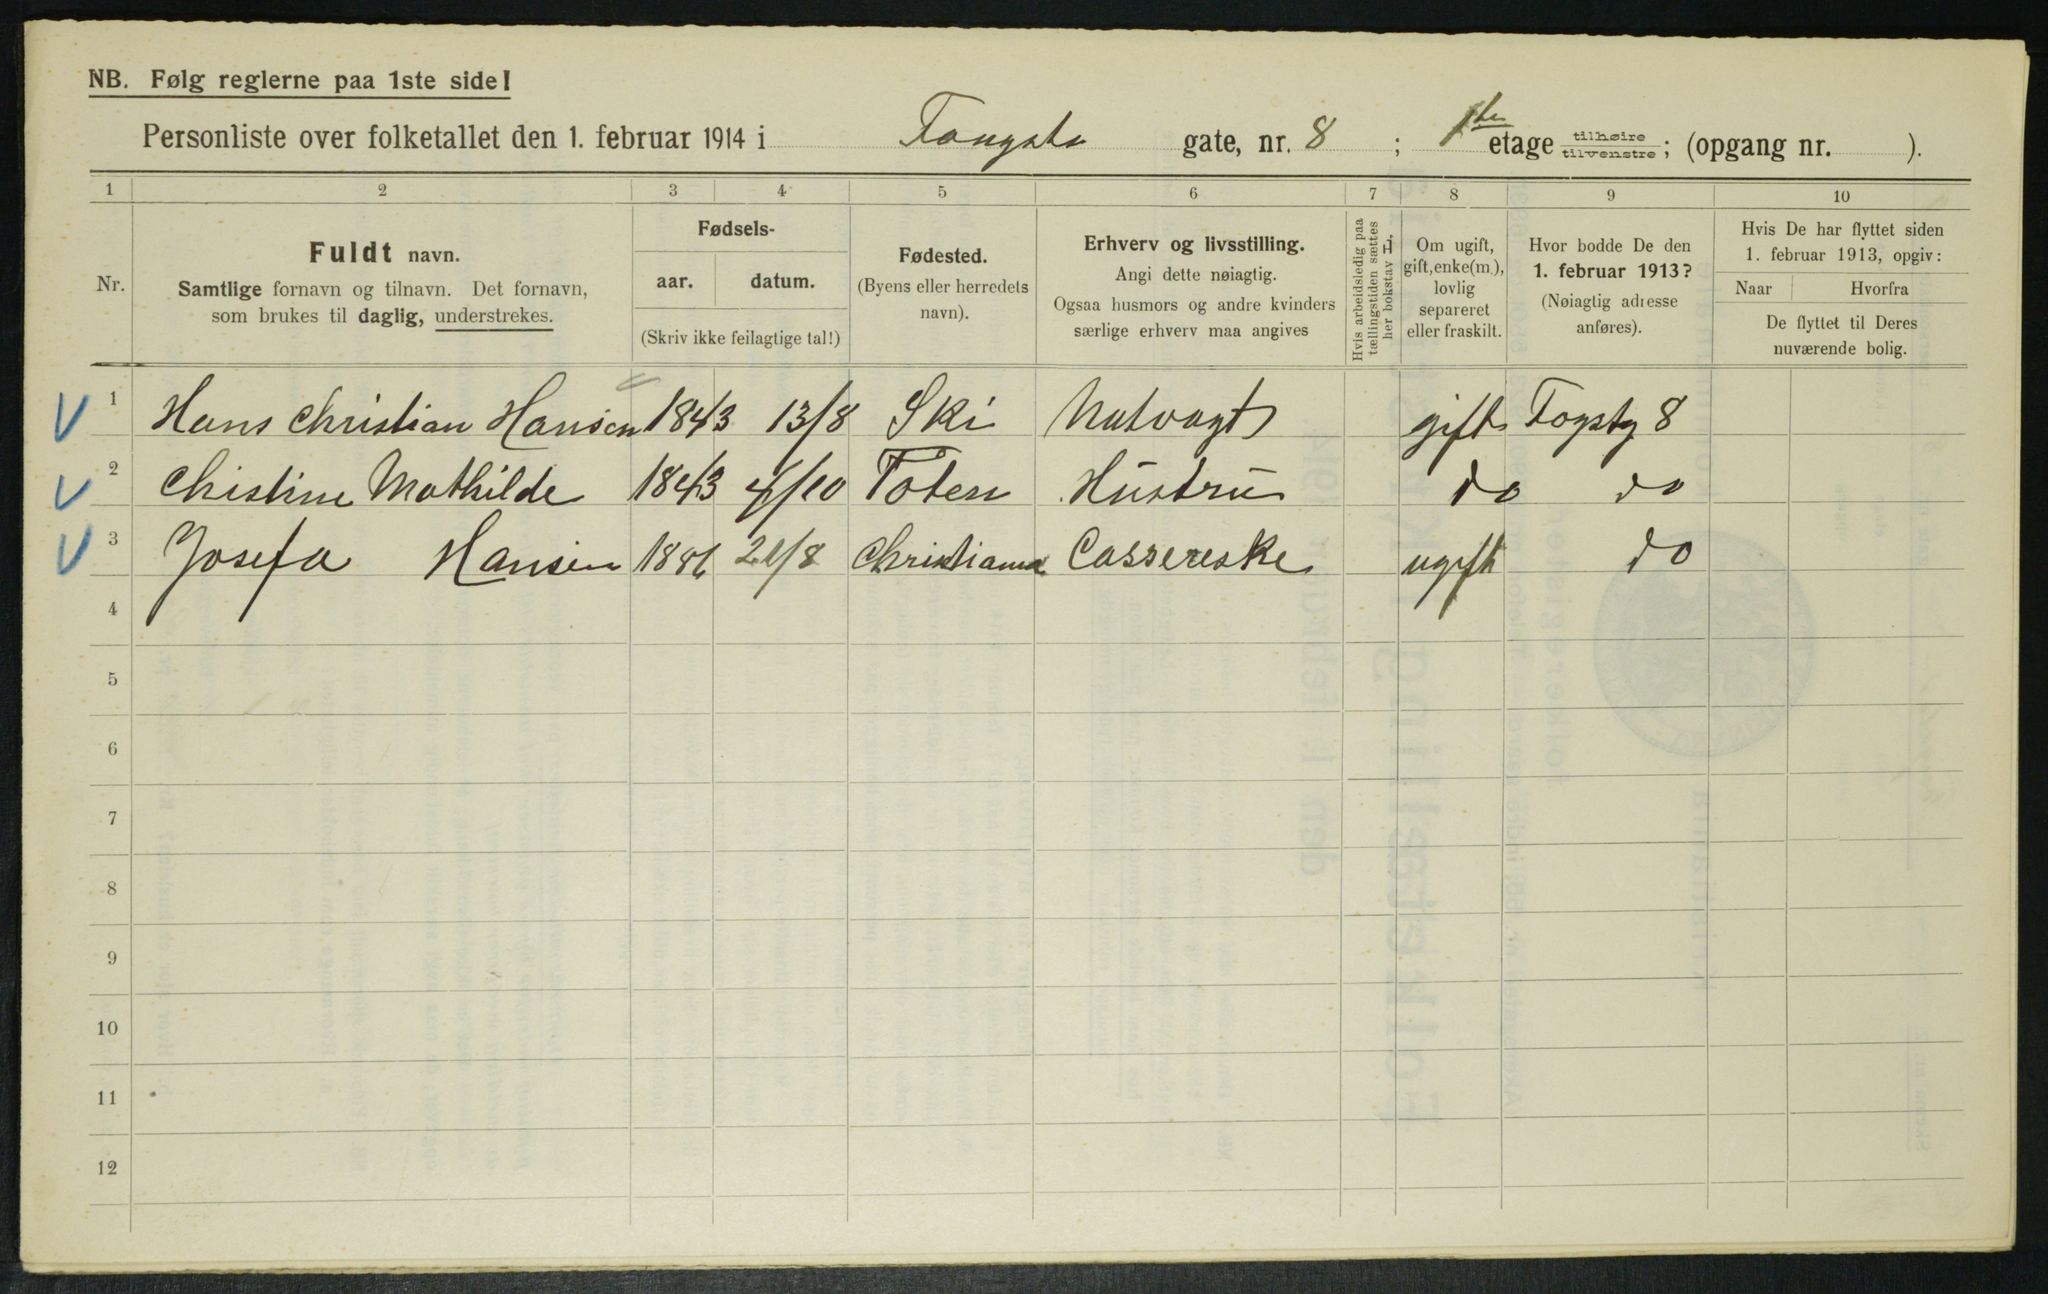 NB. Følg reglerne paa 1ste side!
Personliste over folketallet den 1. februar 1914 i Tougsta gate, nr. 8 ; 1ste etage tilhøire tilvenstre; (opgang nr. ).
1 2 3 4 5 6 7 8 9 10
Nr.
Fuldt navn.
Samtlige fornavn og tilnavn. Det fornavn,
som brukes til daglig, understrekes.
Fødsels-
aar. datum.
(Skriv ikke feilagtige tal!)
Fødested.
(Byens eller herredets
navn).
Erhverv og livsstilling.
Angi dette nøiagtig.
Ogsaa husmors og andre kvinders
særlige erhverv maa angives
Hvis arbeidsledig paa
tællingstiden sættes
her bokstav L,
Om ugift,
gift, enke(m.),
lovlig
separeret
eller fraskilt.
Hvor bodde De den
1. februar 1913?
(Nøiagtig adresse
anføres).
Hvis De har flyttet siden
1. februar 1913, opgiv:
Naar Hvorfra
De flyttet til Deres
nuværende bolig.
1 Hans Christian Hansen 1843 13/8 Ski Natvagt gift Togstg 8
2 Christine Mathilde 1843 4/10 Toten Hustru do do
3 Josefa Hansen 1886 21/8 Christiania Casserske ugift do
4
5
6
7
8
9
10
11
12